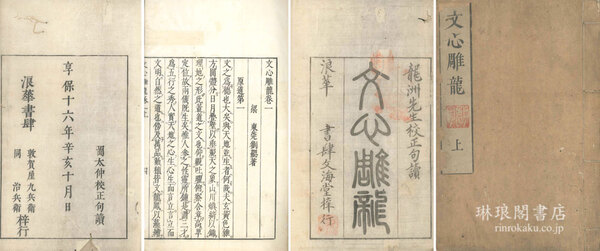 文心雕龍 上
龍洲先生校正句讀
文心雕龍
浪華 書肆文海堂梓行
文心雕龍卷一
梁 東莞劉勰著
原道第一
文之爲德也大矣與天地並生者何哉夫玄黃色雜
方圓體分日月疊璧以垂麗天之象山川煥綺以鋪
理地之形此蓋道之文也仰觀吐曜俯察含章高卑
定位故兩儀既生矣惟人參之性靈所鍾是謂三才
爲五行之秀人實天地之心生心生而言立言立而
文明自然之道也傍及萬品動植皆文龍鳳以藻繪
岡太仲校正句讀
享保十六年辛亥十月日
浪華書肆
敦賀屋九兵衛
同 治兵衛
梓行
琳琅閣書店
rinrokaku.co.jp